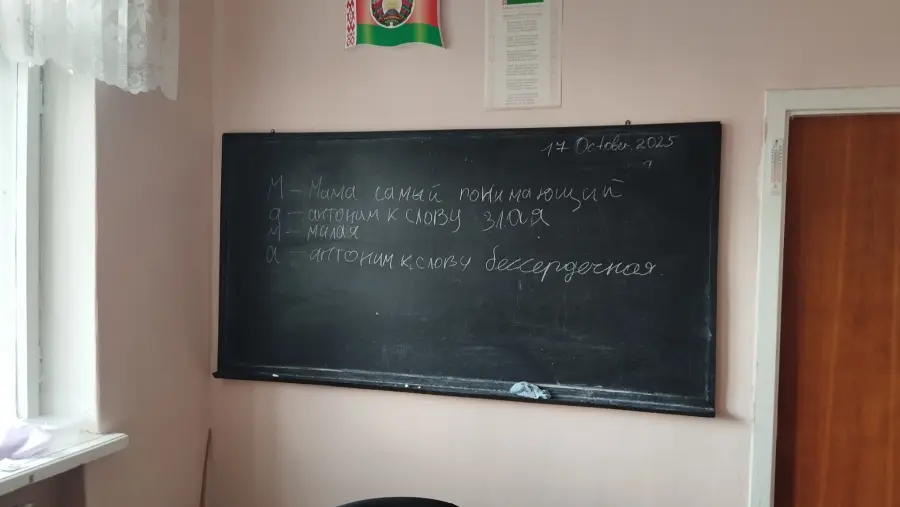 17 October, 2025
М – Мама самый понимающий
а – антоним к слову злая
м – милая
а – антоним к слову бессердечная.